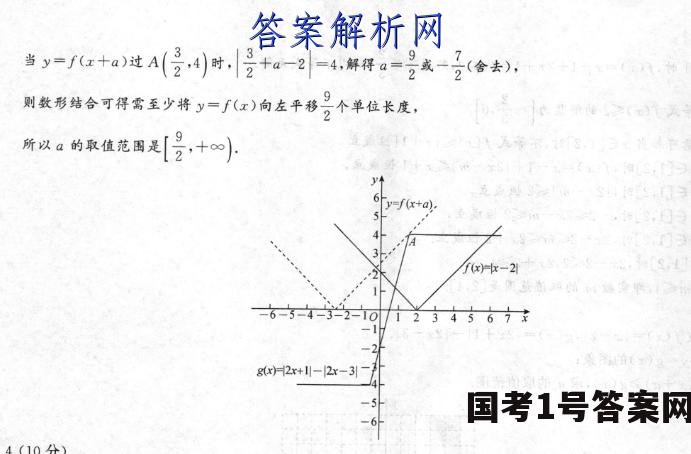 答案解析网
当 y=f(x+a)过 A(3/2,4)时,|3/2+a-2|=4,解得 a=9/2或-7/2(舍去),
则数形结合可得需至少将 y=f(x)向左平移9/2个单位长度,
所以 a 的取值范围是[9/2,+∞).
y
6
y=f(x+a)
5
4
A
3
f(x)=|x-2|
2
1
-6 -5 -4 -3 -2 -1 O 1 2 3 4 5 6 7 x
-1
-2
g(x)=|2x+1|-|2x-3|
-3
-4
-5
-6
国考1号答案网
4.(10分)